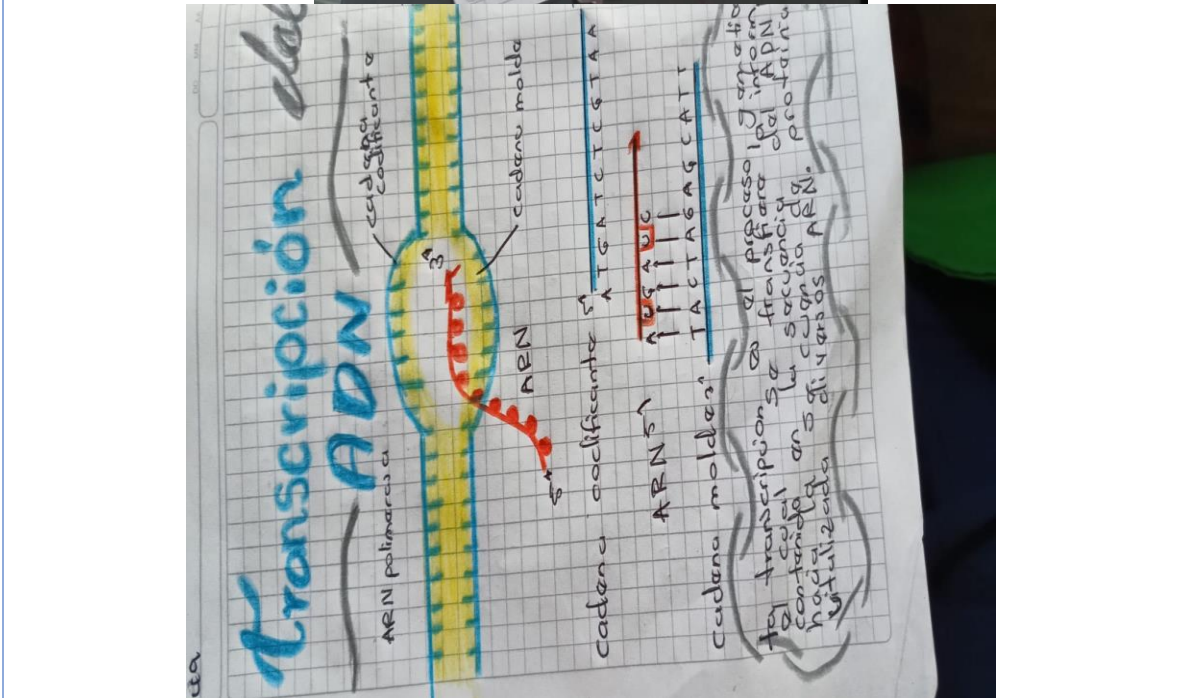 Transcripción del
ADN
ARN polimarasa
cadena
codificanta
3'
cadena molde
ARN
5'
cadena codificanta 5'
ATGATCTCGTAA
ARN 5'
AUGAUC
cadena molde 3'
TACTAGAGCATT
la transcripcion as al procaso
al cual sa transfiara la inform
contanida an la sacuancia dal ADN
hacia la sacuancia da protaina
utalizada divarsos ARN.